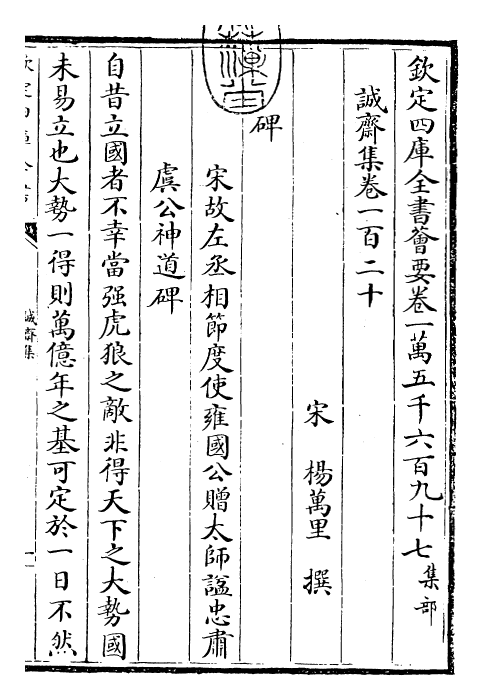 欽定四庫全書薈要卷一萬五千六百九十七 集部
誠齋集卷一百二十
宋 楊萬里 撰
碑
宋故左丞相節度使雍國公贈太師謚忠肅
虞公神道碑
自昔立國者不幸當强虎狼之敵非得天下之大勢國
未易立也大勢一得則萬億年之基可定於一日不然
誠齋集
一